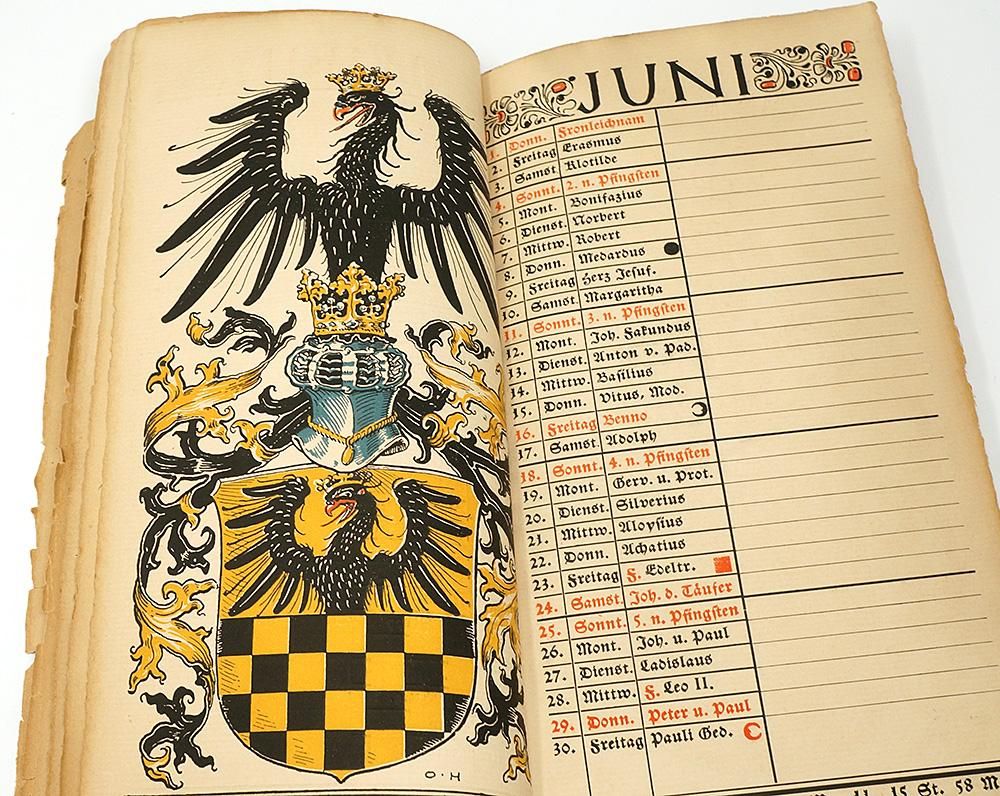 O·H
JUNI
1. Donn. Fronleichnam
2. Freitag Erasmus
3. Samst. Klotilde
4. Sonnt. 2. n. Pfingsten
5. Mont. Bonifazius
6. Dienst. Norbert
7. Mittw. Robert
8. Donn. Medardus
9. Freitag Herz Jesuf.
10. Samst. Margaritha
11. Sonnt. 3. n. Pfingsten
12. Mont. Joh. Fakundus
13. Dienst. Anton v. Pad.
14. Mittw. Basilius
15. Donn. Vitus, Mod.
16. Freitag Benno
17. Samst. Adolph
18. Sonnt. 4. n. Pfingsten
19. Mont. Gerv. u. Prot.
20. Dienst. Silverius
21. Mittw. Aloysius
22. Donn. Achatius
23. Freitag F. Edeltr.
24. Samst. Joh. d. Täufer
25. Sonnt. 5. n. Pfingsten
26. Mont. Joh. u. Paul
27. Dienst. Ladislaus
28. Mittw. F. Leo II.
29. Donn. Peter u. Paul
30. Freitag Pauli Ged.
15 St. 58 M